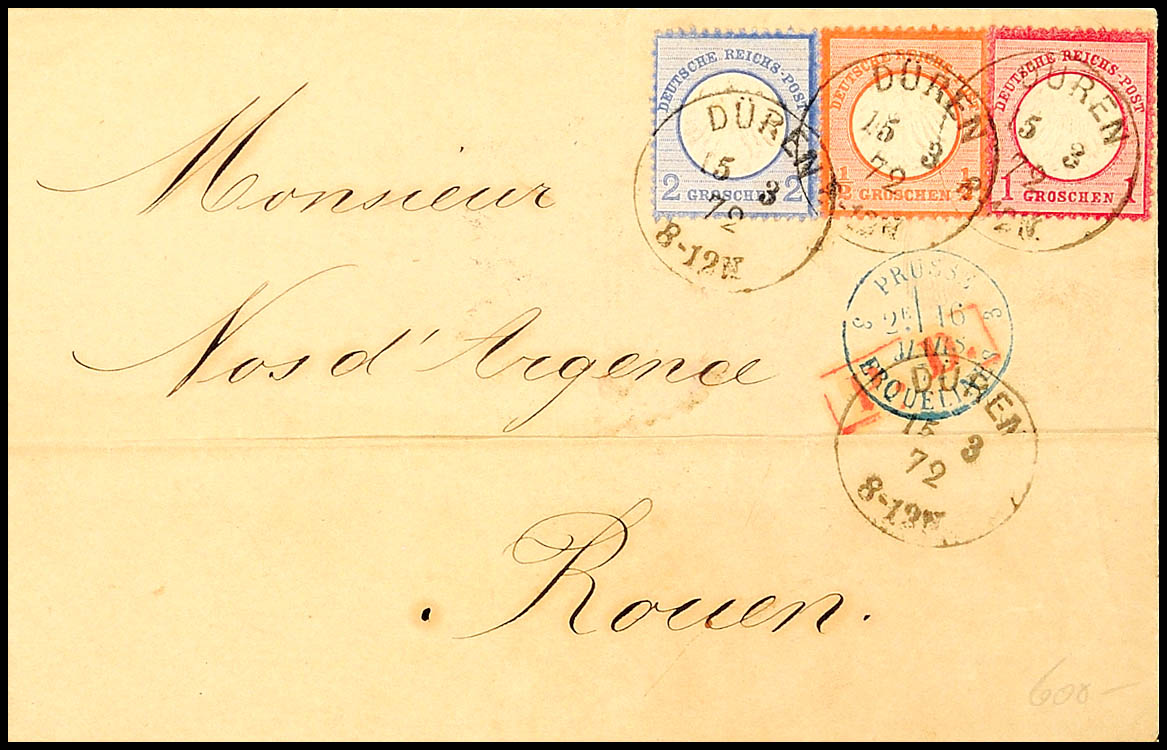 DEUTSCHE REICHS-POST
2 GROSCHEN 2
DEUTSCHE REICHS-POST
1/2 GROSCHEN 1/2
DEUTSCHE REICHS-POST
1 GROSCHEN
DÜREN
15 3
72
8-12N
DÜREN
15 3
72
8-12N
DÜREN
15 3
72
8-12N
Monsieur
PRUSSE
3 2E 16 3
MARS
ERQUELINES
Nos d'Argence
DÜREN
15 3
72
8-12N
Rouen.
600-